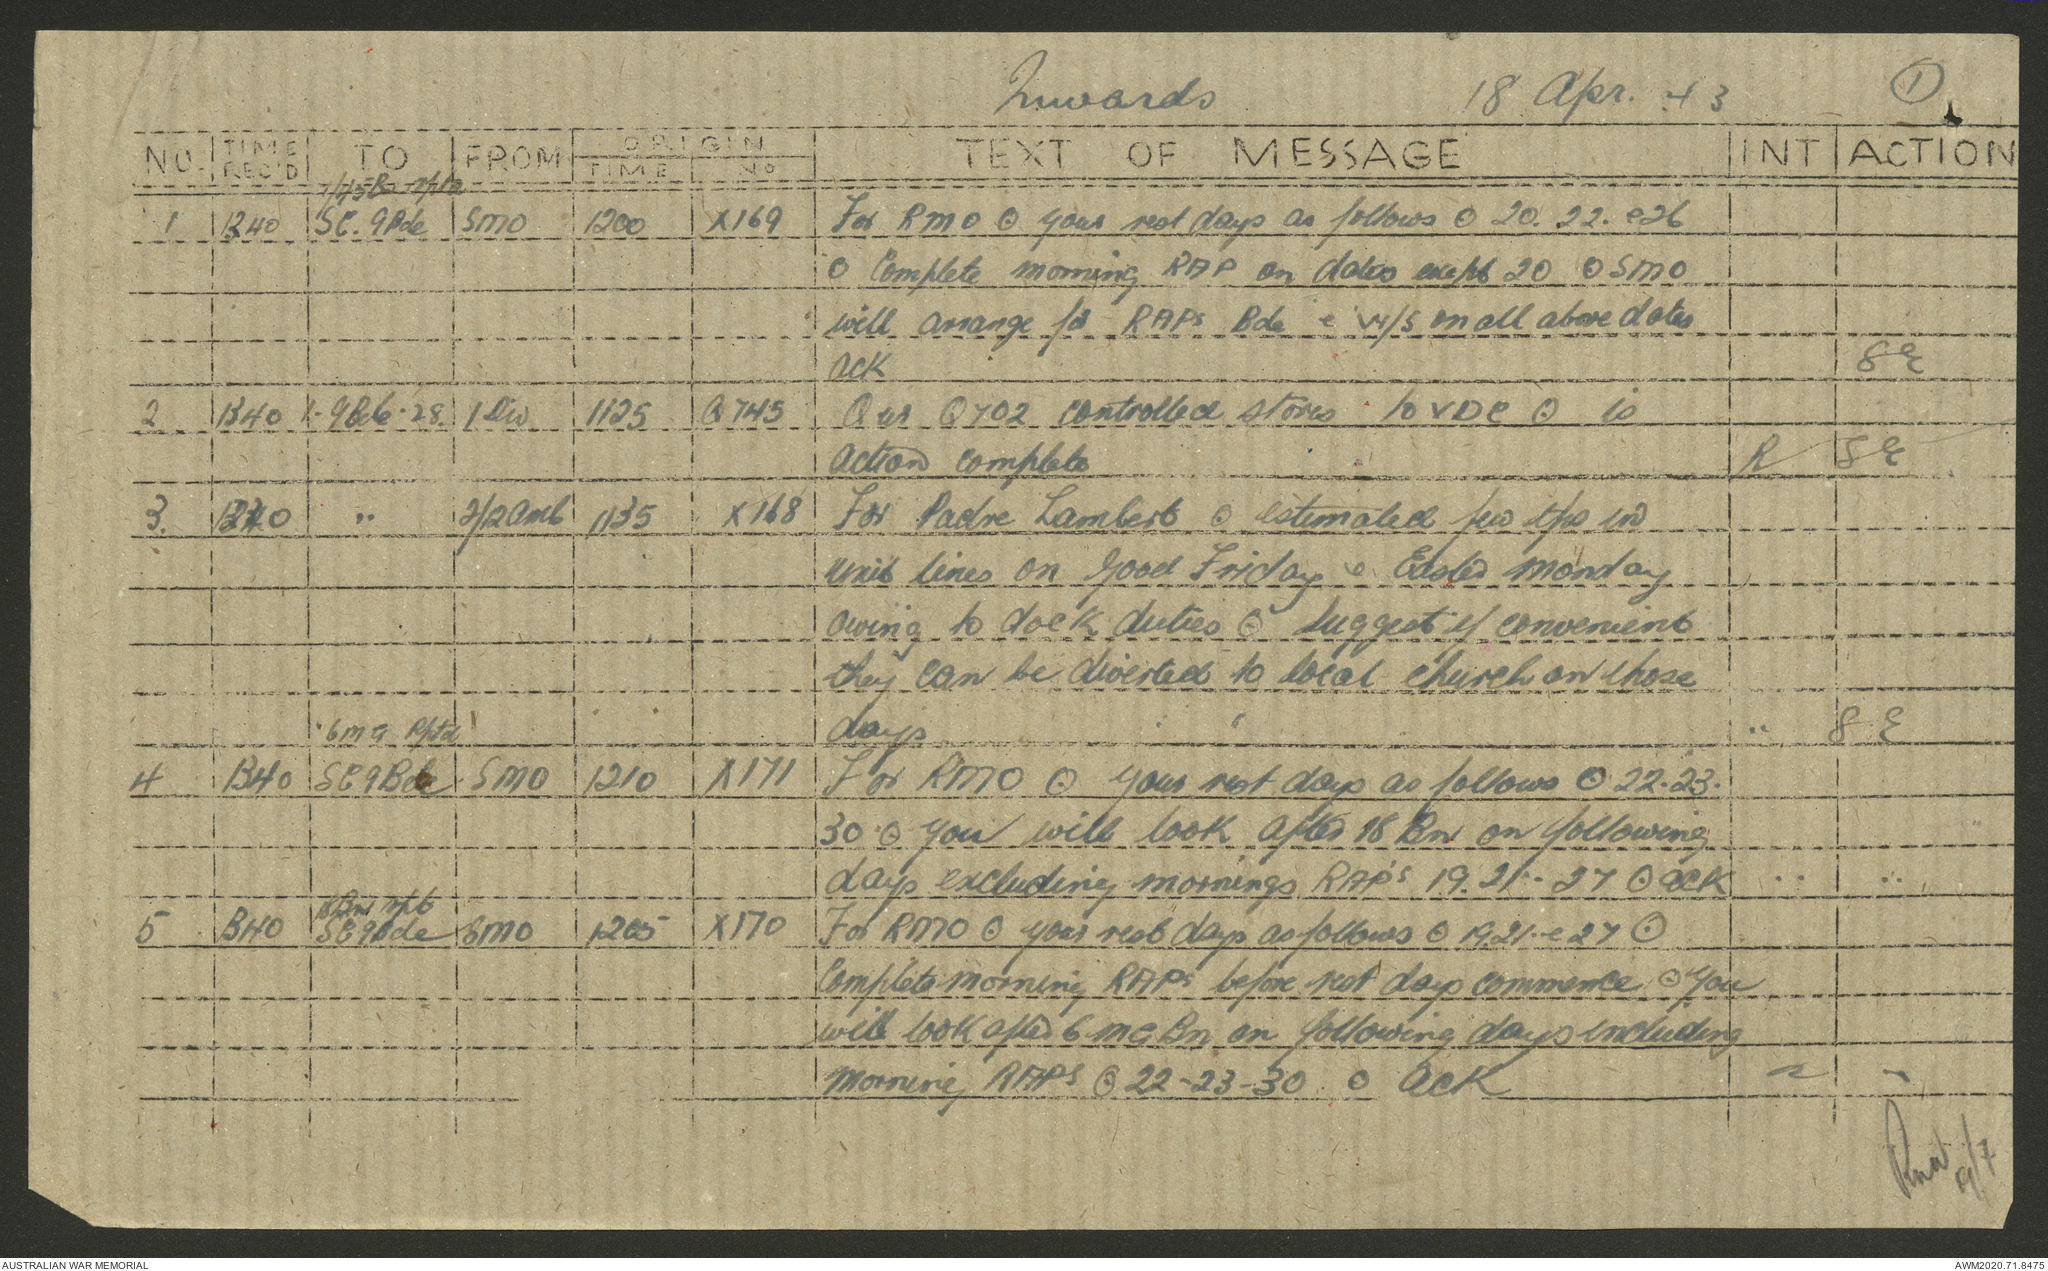 Inwards 18 Apr. 43 1
NO. TIME REC'D TO FROM ORIGIN TIME NO TEXT OF MESSAGE INT ACTION
1 1240 SC. 9 Bde SMO 1200 X169 For RMO ⊙ your rest days as follows ⊙ 20. 22. & 26
⊙ Complete morning RAP on dates except 20 ⊙ SMO
will arrange for RAPs Bde & W/S on all above dates
ack
2 1340 1. 9 Bde. 28. 1 Div 1125 Q745 Our Q702 controlled stores to VDC ⊙ is
action complete R
3. 1240 " 2/12 Amb 1135 X168 For Padre Lambert ⊙ estimated few tps in
unit lines on Good Friday & Easter Monday
owing to dock duties ⊙ Suggest if convenient
they can be diverted to local church on those
days "
6 MG Rptd
4 1340 SC 9 Bde SMO 1210 X171 For RMO ⊙ your rest days as follows ⊙ 22. 23.
30 ⊙ You will look after 18 Bn on following
days excluding mornings RAP's 19. 21. 27 ⊙ ack " "
18 Bn rptd
5 1340 SC 9 Bde SMO 1205 X170 For RMO ⊙ your rest days as follows ⊙ 19. 21. & 27 ⊙
Complete morning RAPs before rest days commence ⊙ You
will look after 6 MG Bn on following days including
morning RAPs ⊙ 22-23-30 ⊙ ack
AUSTRALIAN WAR MEMORIAL AWM2020.71.8475